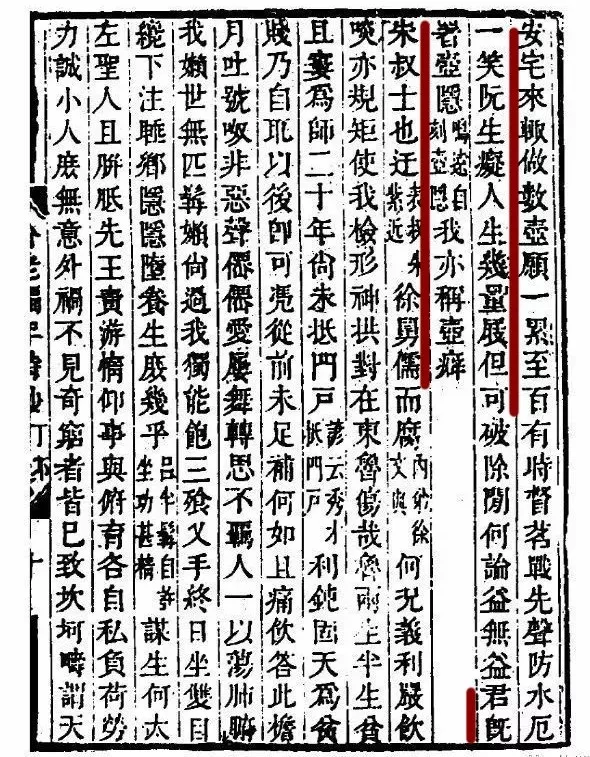 安宅來輙做數壺願一累至百有時督茗戰先聲防水厄
一笑阮生癡人生幾量屐但可破除閒何論益無益君旣
壺隱鳴遠自刻壺隱我亦稱壺癖
朱叔士也迂表叔朱紫近徐舅儒而腐內舅徐文與何況義利嚴飲
啖亦規矩使我檢形神拱對在東魯傷哉魯兩生半生貧
且窶為師二十年尚未抵門戶諺云秀才抵門戶利鈍固天為貧
賤乃自取以後卽可凴從前未足補何如且痛飲答此檐
月吐號呶非惡聲僛僛愛屢舞轉思不羈人一以蕩肺腑
我嬾世無匹髯嬾尚過我獨能飽三飱叉手終日坐雙目
纔下注睡鄉隱隱墮養生庶幾乎呂髯自許坐功甚精謀生何太
左聖人且胼胝先王責游惰仰事與俯育各自私負荷勞
力誠小人庶無意外禍不見奇窮者皆已致坎坷疇謂天